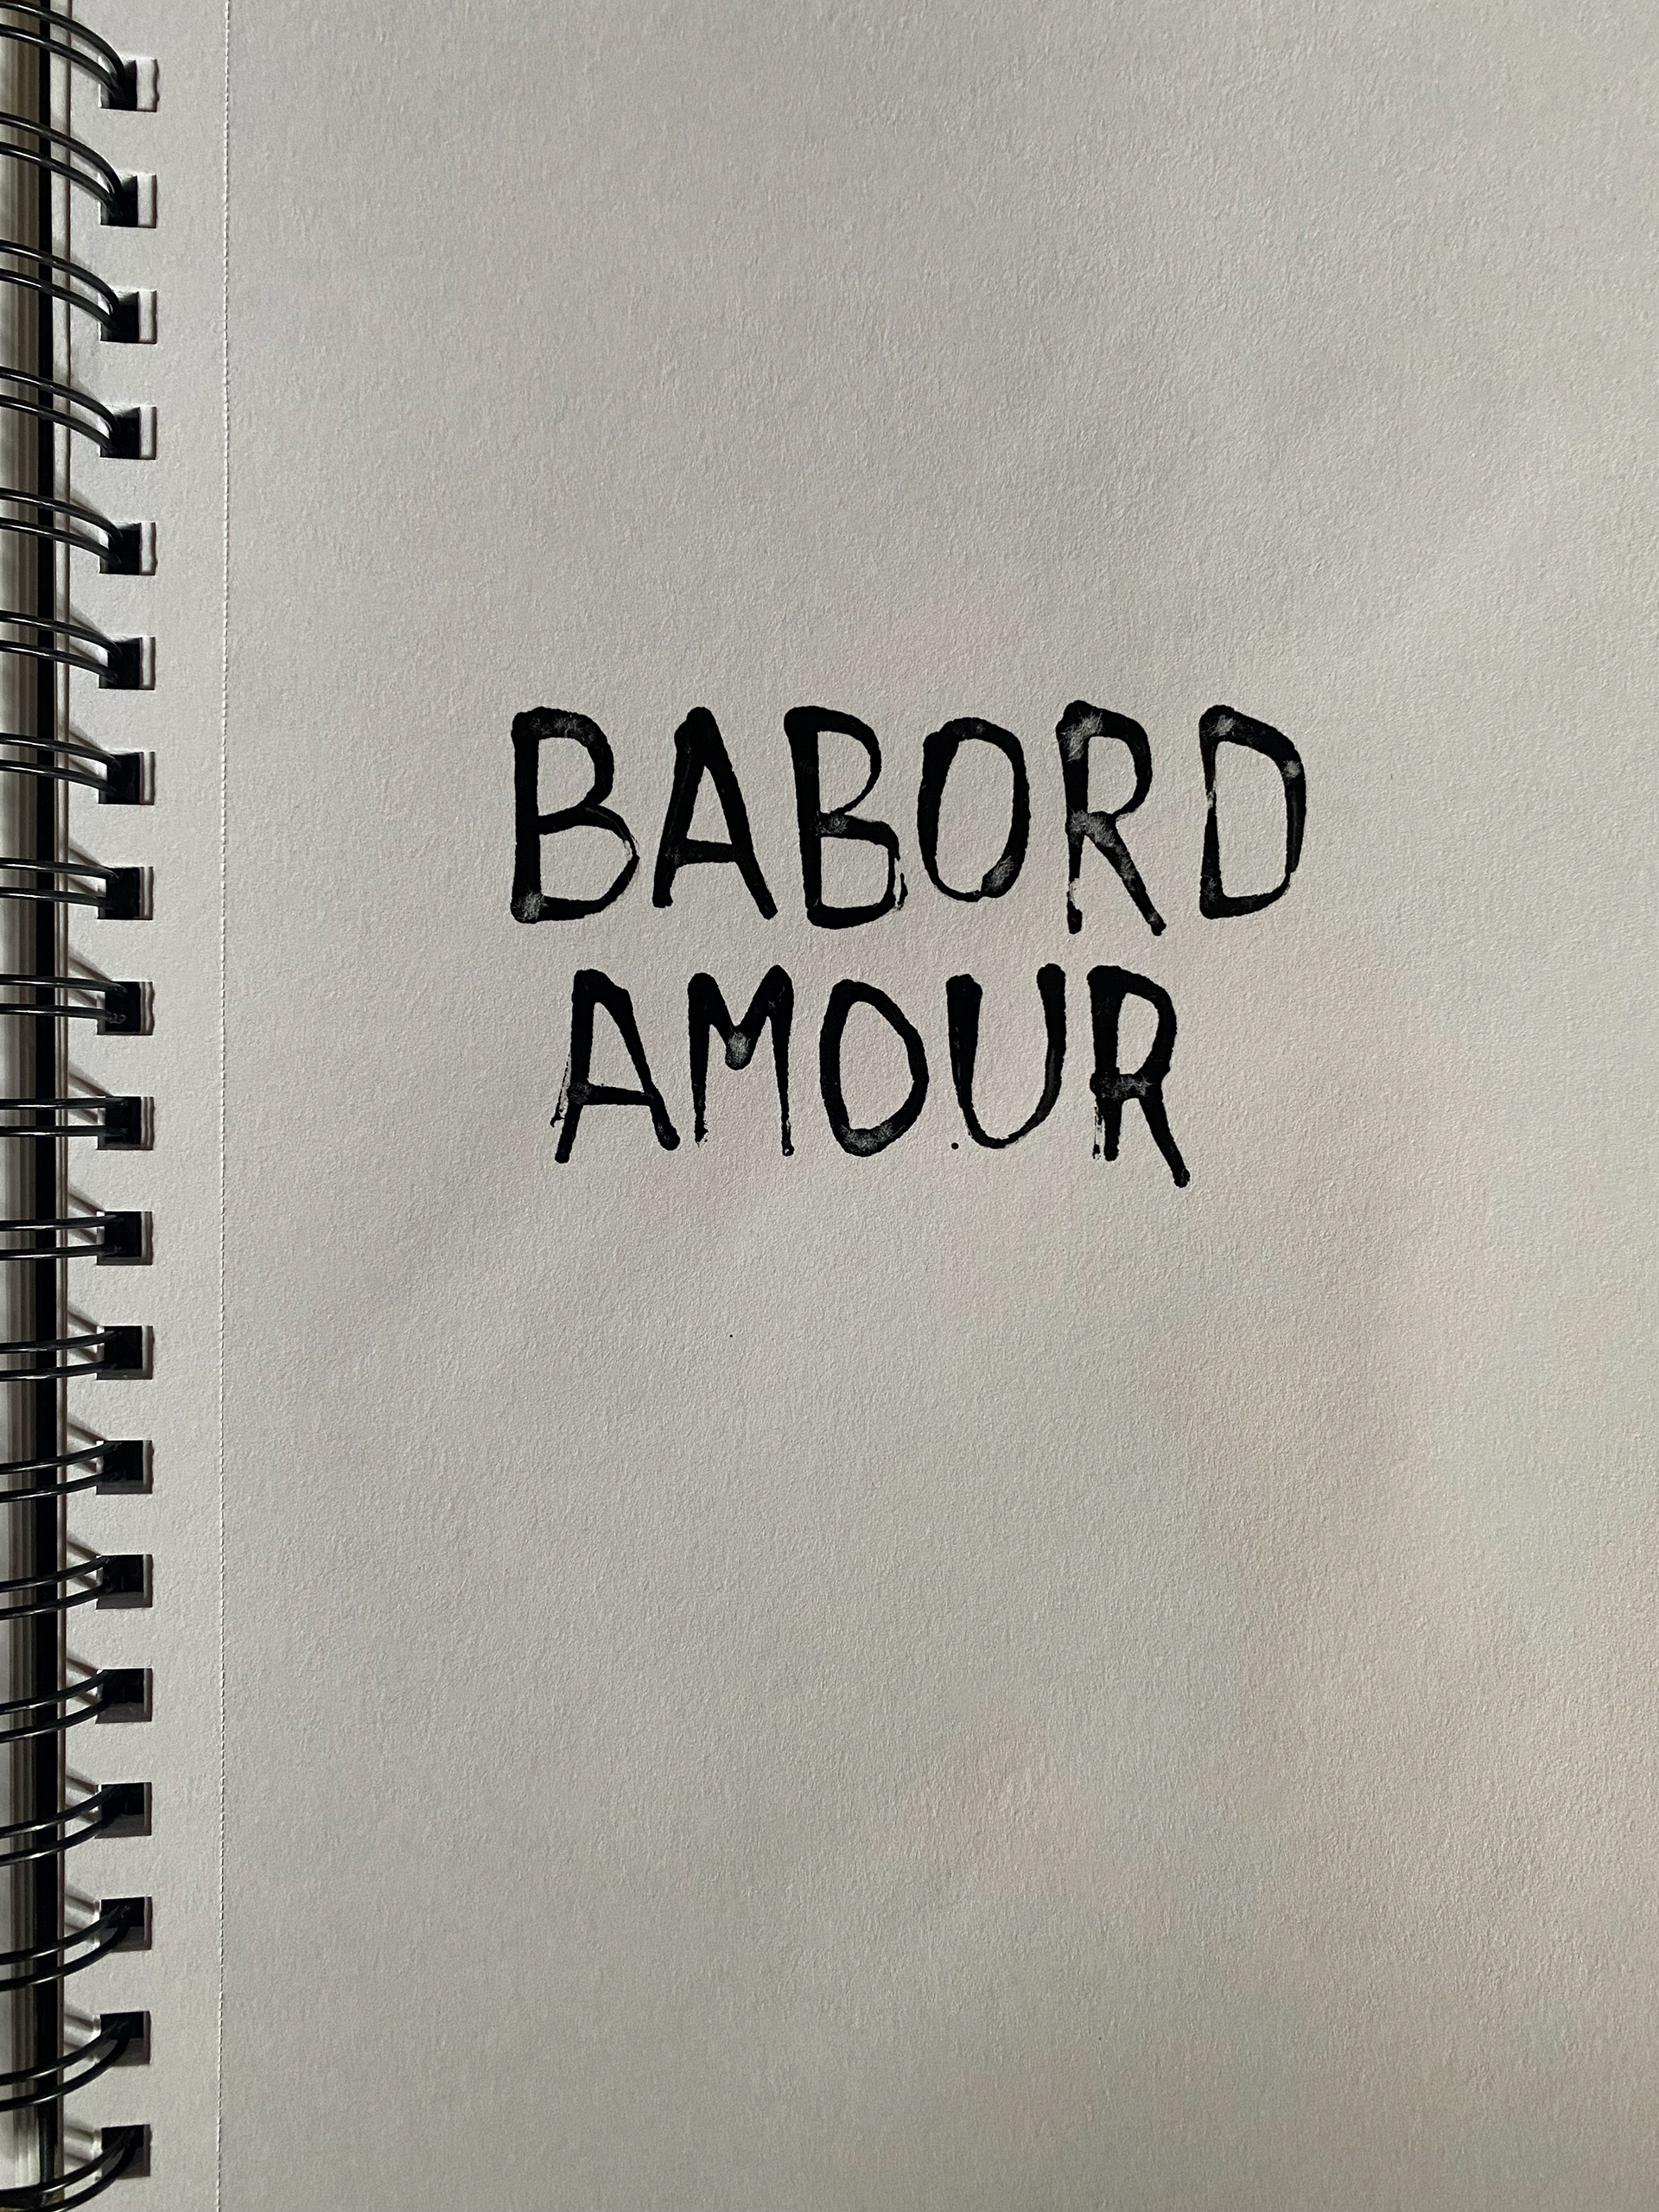 BABORD
AMOUR